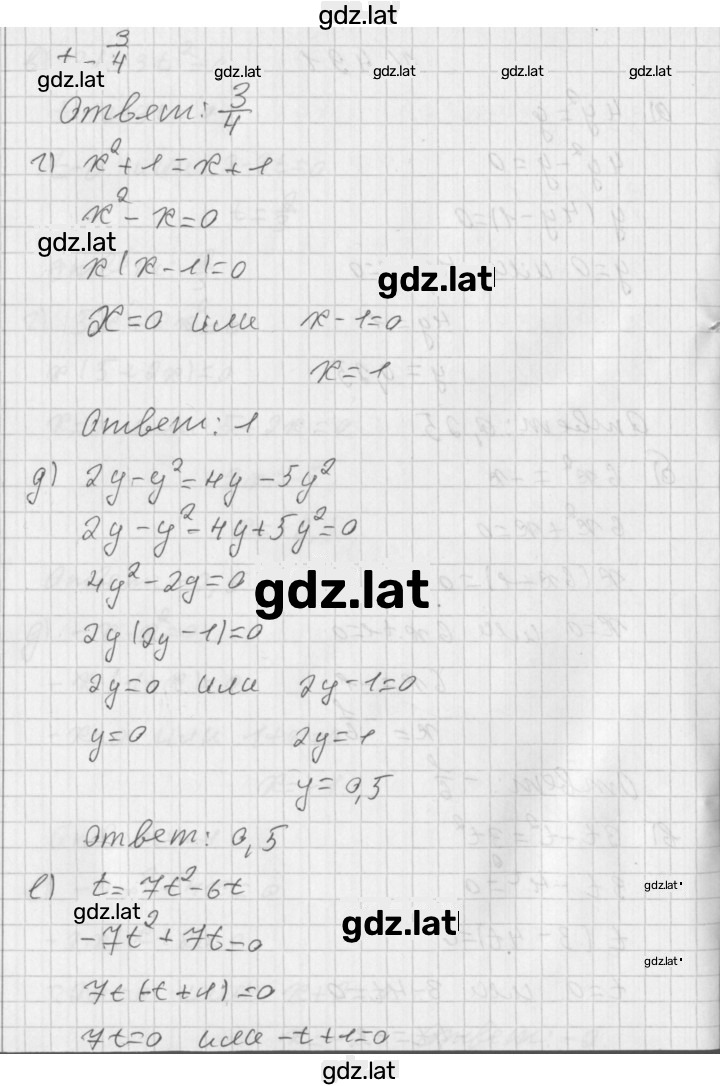 gdz.lat
t = 3/4
gdz.lat gdz.lat gdz.lat gdz.lat gdz.lat
Ответ: 3/4
г) x² + 1 = x + 1
x² - x = 0
gdz.lat
x (x - 1) = 0
gdz.lat
x = 0 или x - 1 = 0
x = 1
Ответ: 1
д) 2y - y² = 4y - 5y²
2y - y² - 4y + 5y² = 0
4y² - 2y = 0
gdz.lat
2y (2y - 1) = 0
2y = 0 или 2y - 1 = 0
y = 0 2y = 1
y = 0,5
Ответ: 0,5
е) t = 7t² - 6t
gdz.lat
gdz.lat
gdz.lat
-7t² + 7t = 0
gdz.lat
7t (-t + 1) = 0
7t = 0 или -t + 1 = 0
gdz.lat